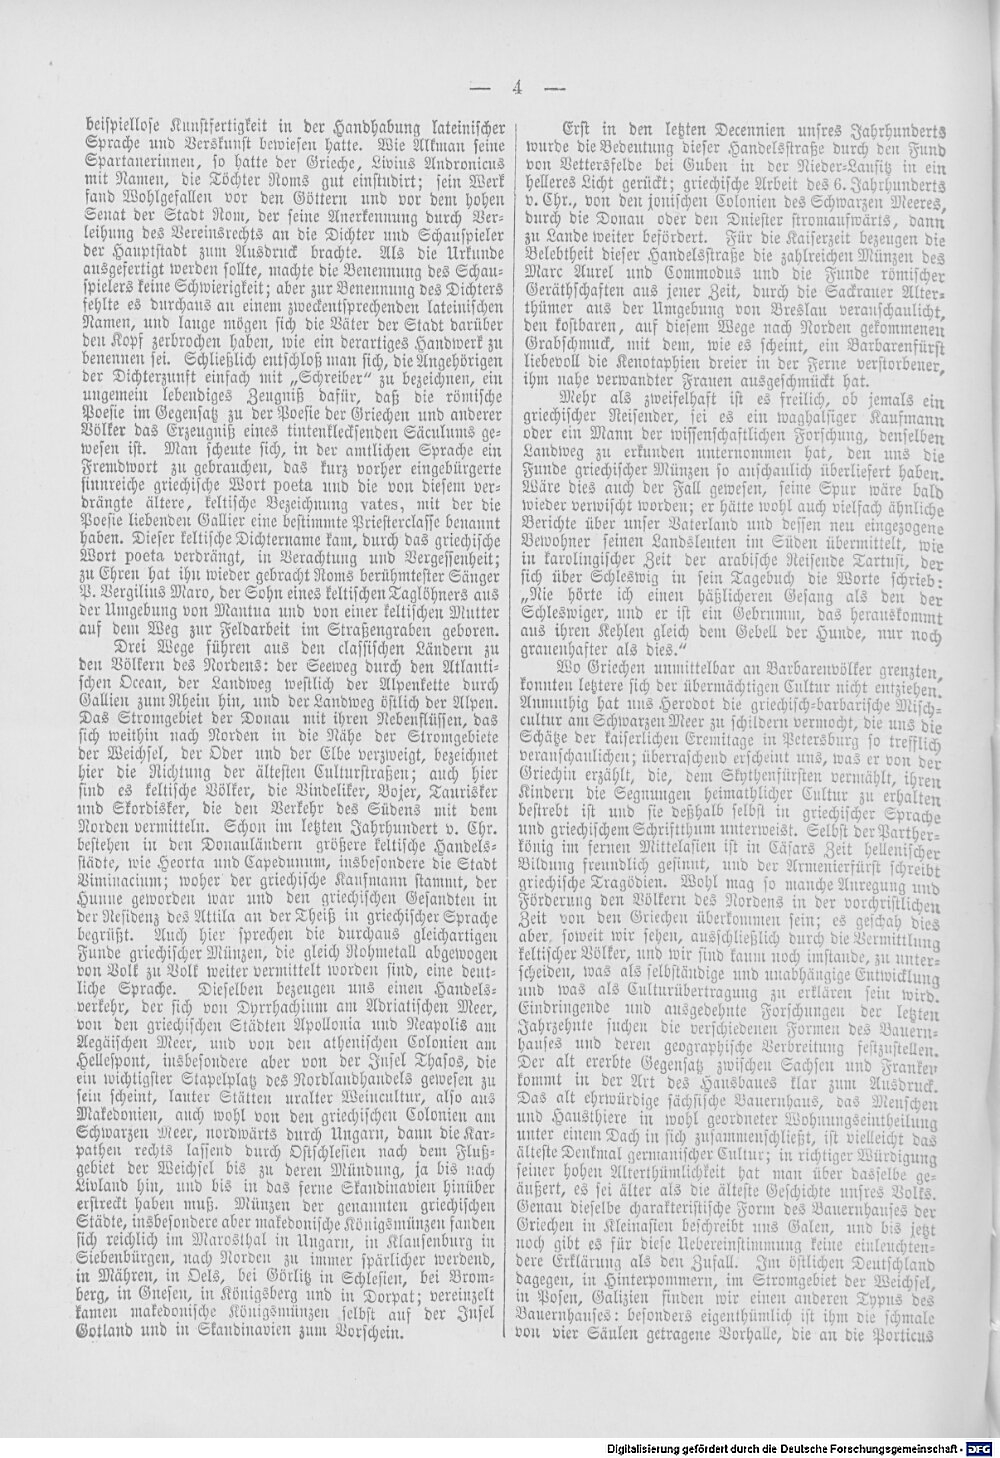 — 4 —
beispiellose Kunstfertigkeit in der Handhabung lateinischer
Sprache und Verskunst bewiesen hatte. Wie Alkman seine
Spartanerinnen, so hatte der Grieche, Livius Andronicus
mit Namen, die Töchter Roms gut einstudirt; sein Werk
fand Wohlgefallen vor den Göttern und vor dem hohen
Senat der Stadt Rom, der seine Anerkennung durch Ver-
leihung des Vereinsrechts an die Dichter und Schauspieler
der Hauptstadt zum Ausdruck brachte. Als die Urkunde
ausgefertigt werden sollte, machte die Benennung des Schau-
spielers keine Schwierigkeit; aber zur Benennung des Dichters
fehlte es durchaus an einem zweckentsprechenden lateinischen
Namen, und lange mögen sich die Väter der Stadt darüber
den Kopf zerbrochen haben, wie ein derartiges Handwerk zu
benennen sei. Schließlich entschloß man sich, die Angehörigen
der Dichterzunft einfach mit „Schreiber“ zu bezeichnen, ein
ungemein lebendiges Zeugniß dafür, daß die römische
Poesie im Gegensatz zu der Poesie der Griechen und anderer
Völker das Erzeugniß eines tintenklecksenden Säculums ge-
wesen ist. Man scheute sich, in der amtlichen Sprache ein
Fremdwort zu gebrauchen, das kurz vorher eingebürgerte
sinnreiche griechische Wort poeta und die von diesem ver-
drängte ältere, keltische Bezeichnung vates, mit der die
Poesie liebenden Gallier eine bestimmte Priesterclasse benannt
haben. Dieser keltische Dichtername kam, durch das griechische
Wort poeta verdrängt, in Verachtung und Vergessenheit;
zu Ehren hat ihn wieder gebracht Roms berühmtester Sänger
P. Vergilius Maro, der Sohn eines keltischen Taglöhners aus
der Umgebung von Mantua und von einer keltischen Mutter
auf dem Weg zur Feldarbeit im Straßengraben geboren.
Drei Wege führen aus den classischen Ländern zu
den Völkern des Nordens: der Seeweg durch den Atlanti-
schen Ocean, der Landweg westlich der Alpenkette durch
Gallien zum Rhein hin, und der Landweg östlich der Alpen.
Das Stromgebiet der Donau mit ihren Nebenflüssen, das
sich weithin nach Norden in die Nähe der Stromgebiete
der Weichsel, der Oder und der Elbe verzweigt, bezeichnet
hier die Richtung der ältesten Culturstraßen; auch hier
sind es keltische Völker, die Vindeliker, Bojer, Taurisker
und Skordisker, die den Verkehr des Südens mit dem
Norden vermitteln. Schon im letzten Jahrhundert v. Chr.
bestehen in den Donauländern größere keltische Handels-
städte, wie Heorta und Capedunum, insbesondere die Stadt
Viminacium; woher der griechische Kaufmann stammt, der
Hunne geworden war und den griechischen Gesandten in
der Residenz des Attila an der Theiß in griechischer Sprache
begrüßt. Auch hier sprechen die durchaus gleichartigen
Funde griechischer Münzen, die gleich Rohmetall abgewogen
von Volk zu Volk weiter vermittelt worden sind, eine deut-
liche Sprache. Dieselben bezeugen uns einen Handels-
verkehr, der sich von Dyrrhachium am Adriatischen Meer,
von den griechischen Städten Apollonia und Neapolis am
Aegäischen Meer, und von den athenischen Colonien am
Hellespont, insbesondere aber von der Insel Thasos, die
ein wichtigster Stapelplatz des Nordlandhandels gewesen zu
sein scheint, lauter Stätten uralter Weincultur, also aus
Makedonien, auch wohl von den griechischen Colonien am
Schwarzen Meer, nordwärts durch Ungarn, dann die Kar-
pathen rechts lassend durch Ostschlesien nach dem Fluß-
gebiet der Weichsel bis zu deren Mündung, ja bis nach
Livland hin, und bis in das ferne Skandinavien hinüber
erstreckt haben muß. Münzen der genannten griechischen
Städte, insbesondere aber makedonische Königsmünzen fanden
sich reichlich im Marosthal in Ungarn, in Klausenburg in
Siebenbürgen, nach Norden zu immer spärlicher werdend,
in Mähren, in Oels, bei Görlitz in Schlesien, bei Brom-
berg, in Gnesen, in Königsberg und in Dorpat; vereinzelt
kamen makedonische Königsmünzen selbst auf der Insel
Gotland und in Skandinavien zum Vorschein.
Erst in den letzten Decennien unsres Jahrhunderts
wurde die Bedeutung dieser Handelsstraße durch den Fund
von Vettersfelde bei Guben in der Nieder-Lausitz in ein
helleres Licht gerückt; griechische Arbeit des 6. Jahrhunderts
v. Chr., von den jonischen Colonien des Schwarzen Meeres,
durch die Donau oder den Dniester stromaufwärts, dann
zu Lande weiter befördert. Für die Kaiserzeit bezeugen die
Belebtheit dieser Handelsstraße die zahlreichen Münzen des
Marc Aurel und Commodus und die Funde römischer
Geräthschaften aus jener Zeit, durch die Sackrauer Alter-
thümer aus der Umgebung von Breslau veranschaulicht,
den kostbaren, auf diesem Wege nach Norden gekommenen
Grabschmuck, mit dem, wie es scheint, ein Barbarenfürst
liebevoll die Kenotaphien dreier in der Ferne verstorbener,
ihm nahe verwandter Frauen ausgeschmückt hat.
Mehr als zweifelhaft ist es freilich, ob jemals ein
griechischer Reisender, sei es ein waghalsiger Kaufmann
oder ein Mann der wissenschaftlichen Forschung, denselben
Landweg zu erkunden unternommen hat, den uns die
Funde griechischer Münzen so anschaulich überliefert haben.
Wäre dies auch der Fall gewesen, seine Spur wäre bald
wieder verwischt worden; er hätte wohl auch vielfach ähnliche
Berichte über unser Vaterland und dessen neu eingezogene
Bewohner seinen Landsleuten im Süden übermittelt, wie
in karolingischer Zeit der arabische Reisende Tartusi, der
sich über Schleswig in sein Tagebuch die Worte schrieb:
„Nie hörte ich einen häßlicheren Gesang als den der
Schleswiger, und er ist ein Gebrumm, das herauskommt
aus ihren Kehlen gleich dem Gebell der Hunde, nur noch
grauenhafter als dies.“
Wo Griechen unmittelbar an Barbarenvölker grenzten,
konnten letztere sich der übermächtigen Cultur nicht entziehen.
Anmuthig hat uns Herodot die griechisch-barbarische Misch-
cultur am Schwarzen Meer zu schildern vermocht, die uns die
Schätze der kaiserlichen Eremitage in Petersburg so trefflich
veranschaulichen; überraschend erscheint uns, was er von der
Griechin erzählt, die, dem Skythenfürsten vermählt, ihren
Kindern die Segnungen heimathlicher Cultur zu erhalten
bestrebt ist und sie deßhalb selbst in griechischer Sprache
und griechischem Schriftthum unterweist. Selbst der Parther-
könig im fernen Mittelasien ist in Cäsars Zeit hellenischer
Bildung freundlich gesinnt, und der Armenierfürst schreibt
griechische Tragödien. Wohl mag so manche Anregung und
Förderung den Völkern des Nordens in der vorchristlichen
Zeit von den Griechen überkommen sein; es geschah dies
aber, soweit wir sehen, ausschließlich durch die Vermittlung
keltischer Völker, und wir sind kaum noch imstande, zu unter-
scheiden, was als selbständige und unabhängige Entwicklung
und was als Culturübertragung zu erklären sein wird.
Eindringende und ausgedehnte Forschungen der letzten
Jahrzehnte suchen die verschiedenen Formen des Bauern-
hauses und deren geographische Verbreitung festzustellen.
Der alt ererbte Gegensatz zwischen Sachsen und Franken
kommt in der Art des Hausbaues klar zum Ausdruck.
Das alt ehrwürdige sächsische Bauernhaus, das Menschen
und Hausthiere in wohl geordneter Wohnungseintheilung
unter einem Dach in sich zusammenschließt, ist vielleicht das
älteste Denkmal germanischer Cultur; in richtiger Würdigung
seiner hohen Alterthümlichkeit hat man über dasselbe ge-
äußert, es sei älter als die älteste Geschichte unsres Volks.
Genau dieselbe charakteristische Form des Bauernhauses der
Griechen in Kleinasien beschreibt uns Galen, und bis jetzt
noch gibt es für diese Uebereinstimmung keine einleuchten-
dere Erklärung als den Zufall. Im östlichen Deutschland
dagegen, in Hinterpommern, im Stromgebiet der Weichsel,
in Posen, Galizien finden wir einen anderen Typus des
Bauernhauses: besonders eigenthümlich ist ihm die schmale
von vier Säulen getragene Vorhalle, die an die Porticus
Digitalisierung gefördert durch die Deutsche Forschungsgemeinschaft - DFG